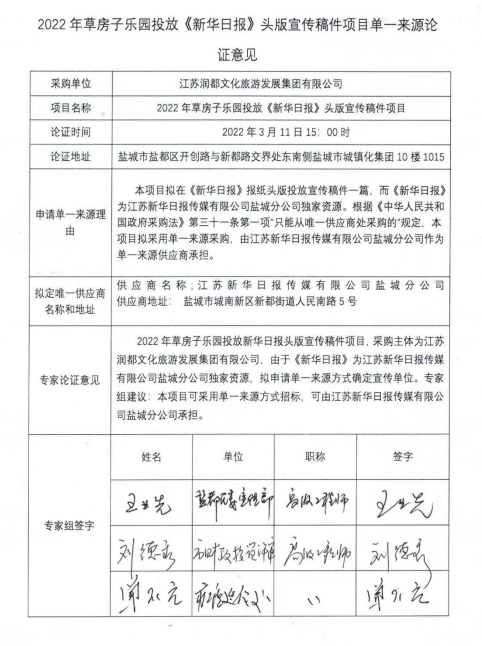 2022 年草房子乐园投放《新华日报》头版宣传稿件项目单一来源论
证意见
采购单位
江苏润都文化旅游发展集团有限公司
项目名称
2022 年草房子乐园投放《新华日报》头版宣传稿件项目
论证时间
2022 年 3 月 11 日 15：00 时
论证地址
盐城市盐都区开创路与新都路交界处东南侧盐城市城镇化集团 10 楼 1015
申请单一来源理
由
本项目拟在《新华日报》报纸头版投放宣传稿件一篇，而《新华日报》
为江苏新华日报传媒有限公司盐城分公司独家资源。根据《中华人民共和
国政府采购法》第三十一条第一项“只能从唯一供应商处采购的”规定，本
项目拟采用单一来源采购，由江苏新华日报传媒有限公司盐城分公司作为
单一来源供应商承担。
拟定唯一供应商
名称和地址
供应商名称:江苏新华日报传媒有限公司盐城分公司
供应商地址： 盐城市城南新区新都街道人民南路 5 号
专家论证意见
2022 年草房子乐园投放新华日报头版宣传稿件项目，采购主体为江苏
润都文化旅游发展集团有限公司，由于《新华日报》为江苏新华日报传媒
有限公司盐城分公司独家资源，拟申请单一来源方式确定宣传单位。专家
组建议：本项目可采用单一来源方式招标，可由江苏新华日报传媒有限公
司盐城分公司承担。
专家组签字
姓名 单位 职称 签字
高级工程师
刘德 高级工程师 刘德